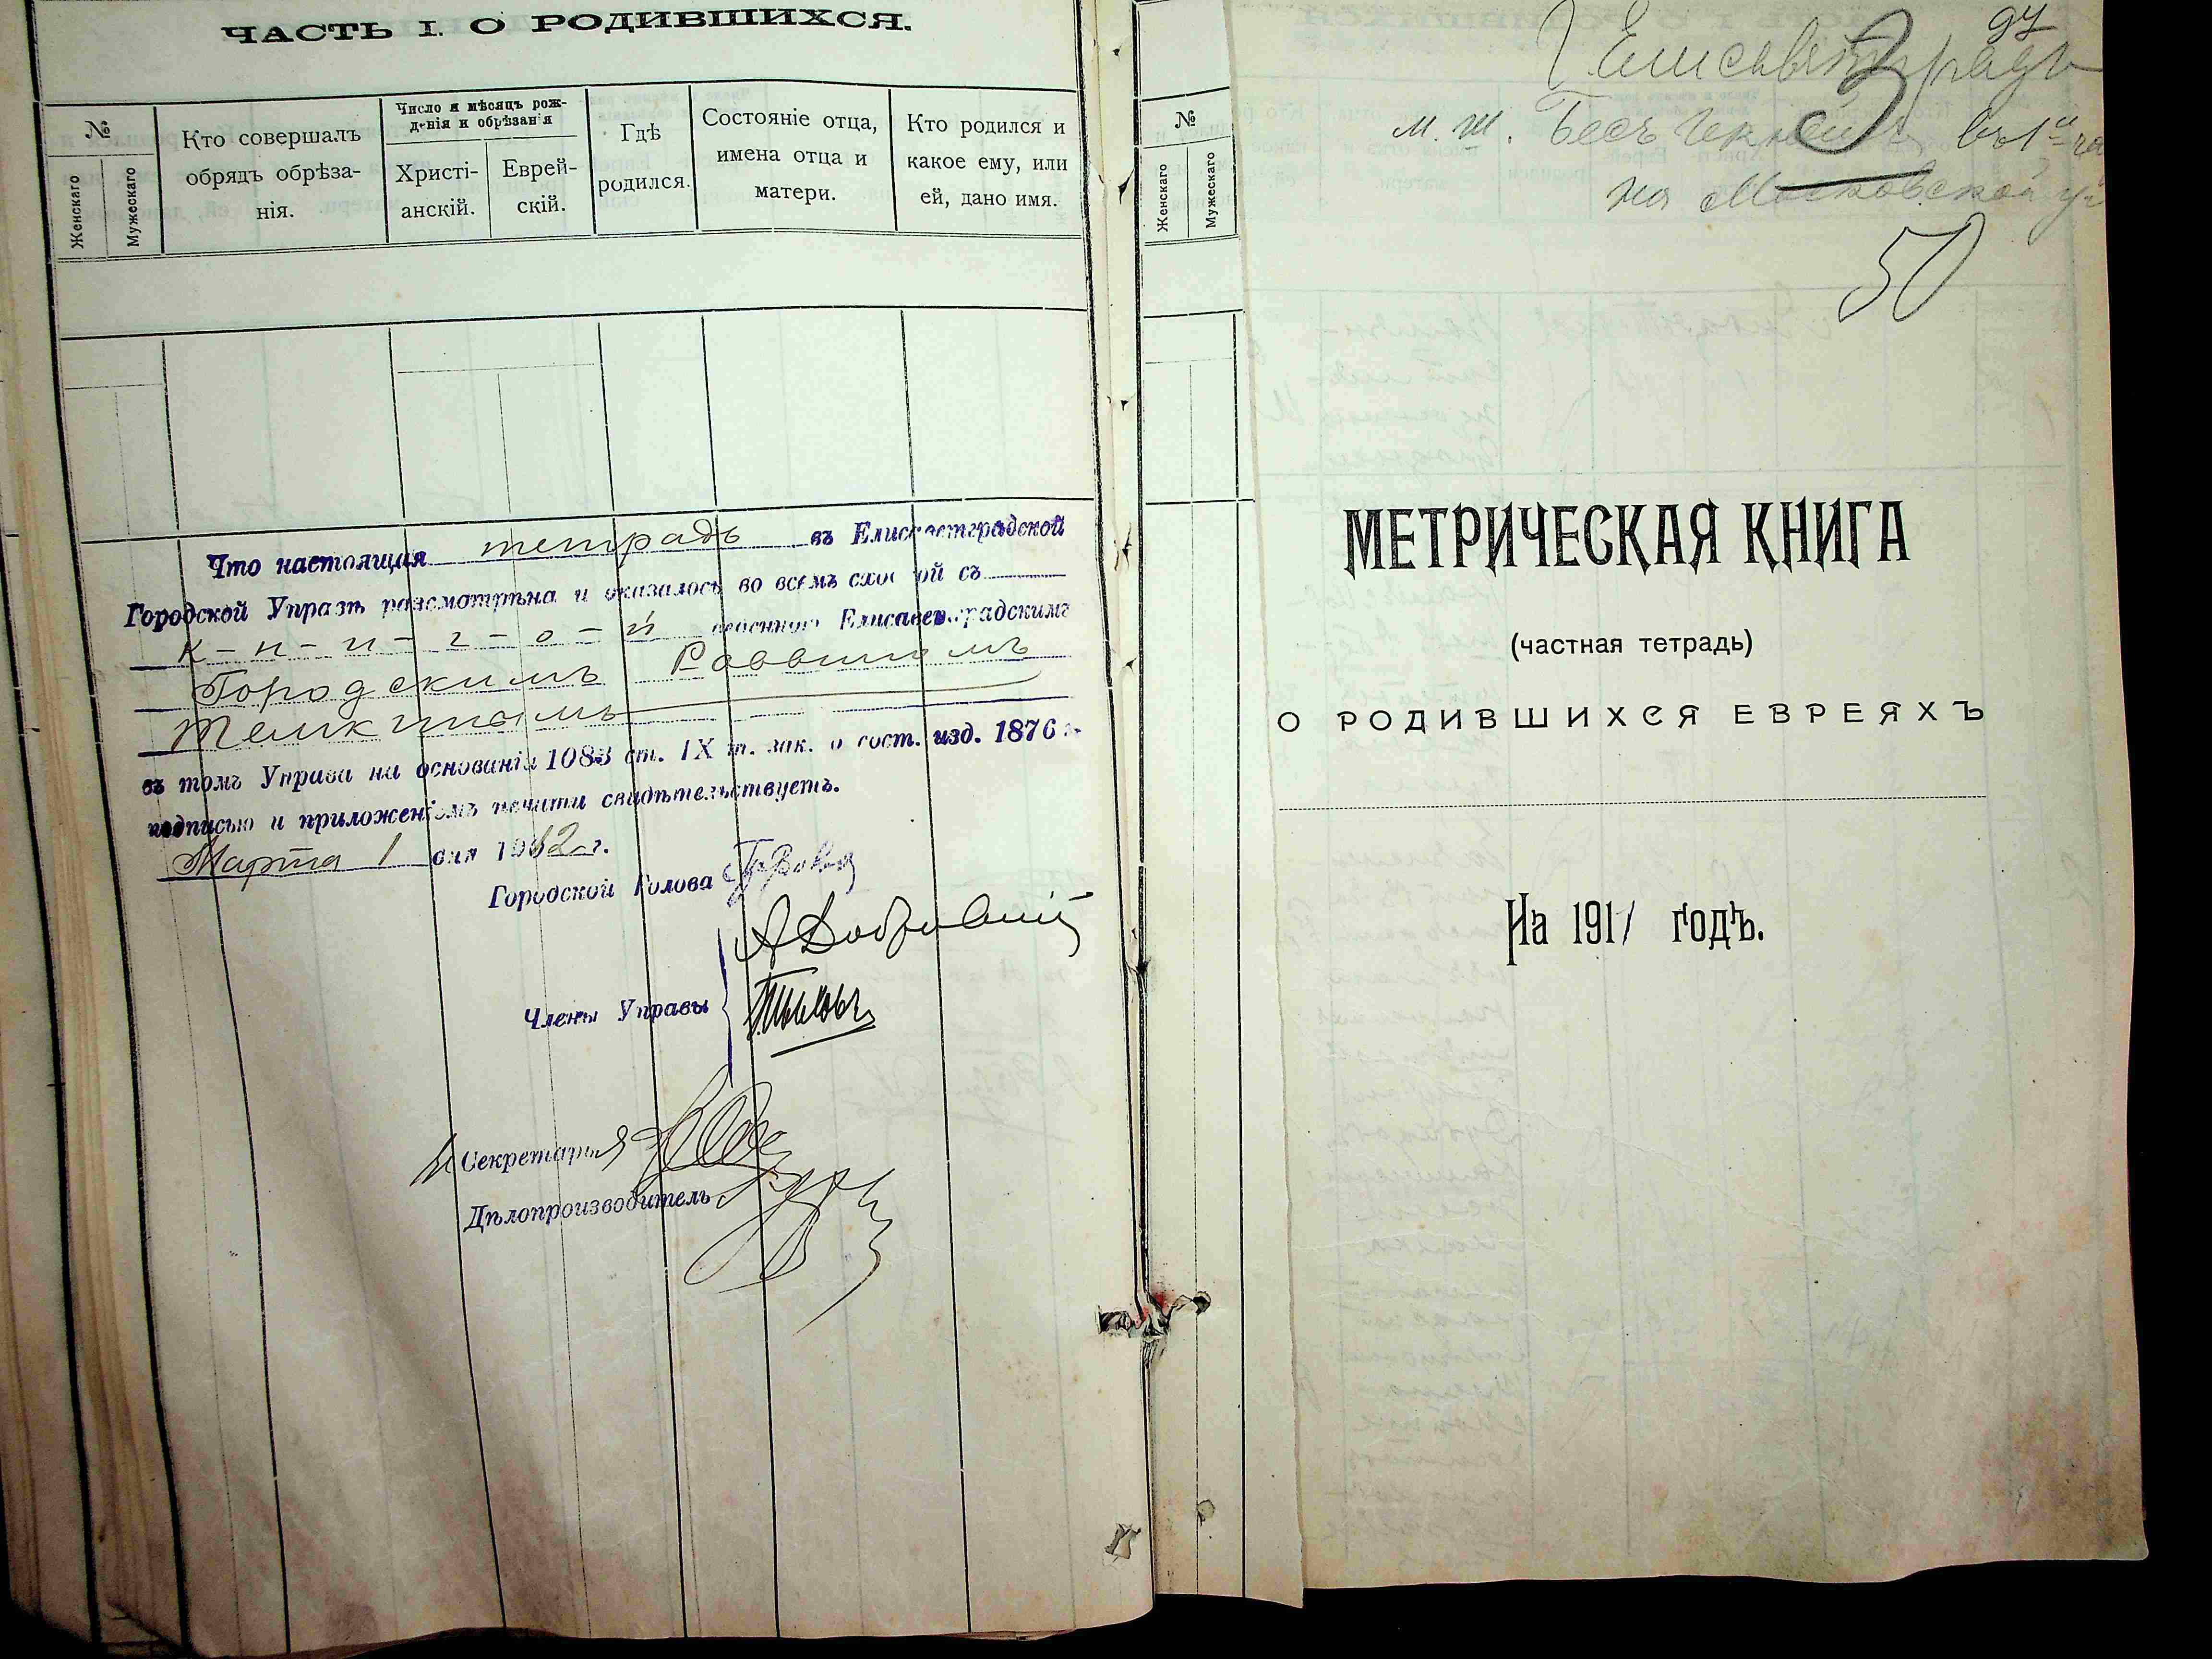 ЧАСТЬ I. О РОДИВШИХСЯ.
№
Женскаго
Мужескаго
Кто совершалъ
обрядъ обрѣза-
нія.
Число и мѣсяцъ рож-
денія и обрѣзанія
Христі-
анскій.
Еврей-
скій.
Гдѣ
родился.
Состояніе отца,
имена отца и
матери.
Кто родился и
какое ему, или
ей, дано имя.
Что настоящая тетрадь въ Елисаветградской
Городской Управѣ разсмотрѣна и оказалось во всемъ схожей съ
к-н-и-г-о-й Елисаветградскимъ
Городскимъ Раввиномъ
Темкинымъ
въ томъ Управа на основаніи 1083 ст. IX т. зак. о сост. изд. 1876 г.
подписью и приложеніемъ печати свидѣтельствуетъ.
Марта 1 дня 1912 г.
Городской Голова
Члены Управы
И Секретаря
Дѣлопроизводитель
№
Женскаго
Мужескаго
97
Г. Елисаветградъ
3
м. ш. въ 1й ча
на Московской ул
50
МЕТРИЧЕСКАЯ КНИГА
(частная тетрадь)
О РОДИВШИХСЯ ЕВРЕЯХЪ
На 1911 годъ.